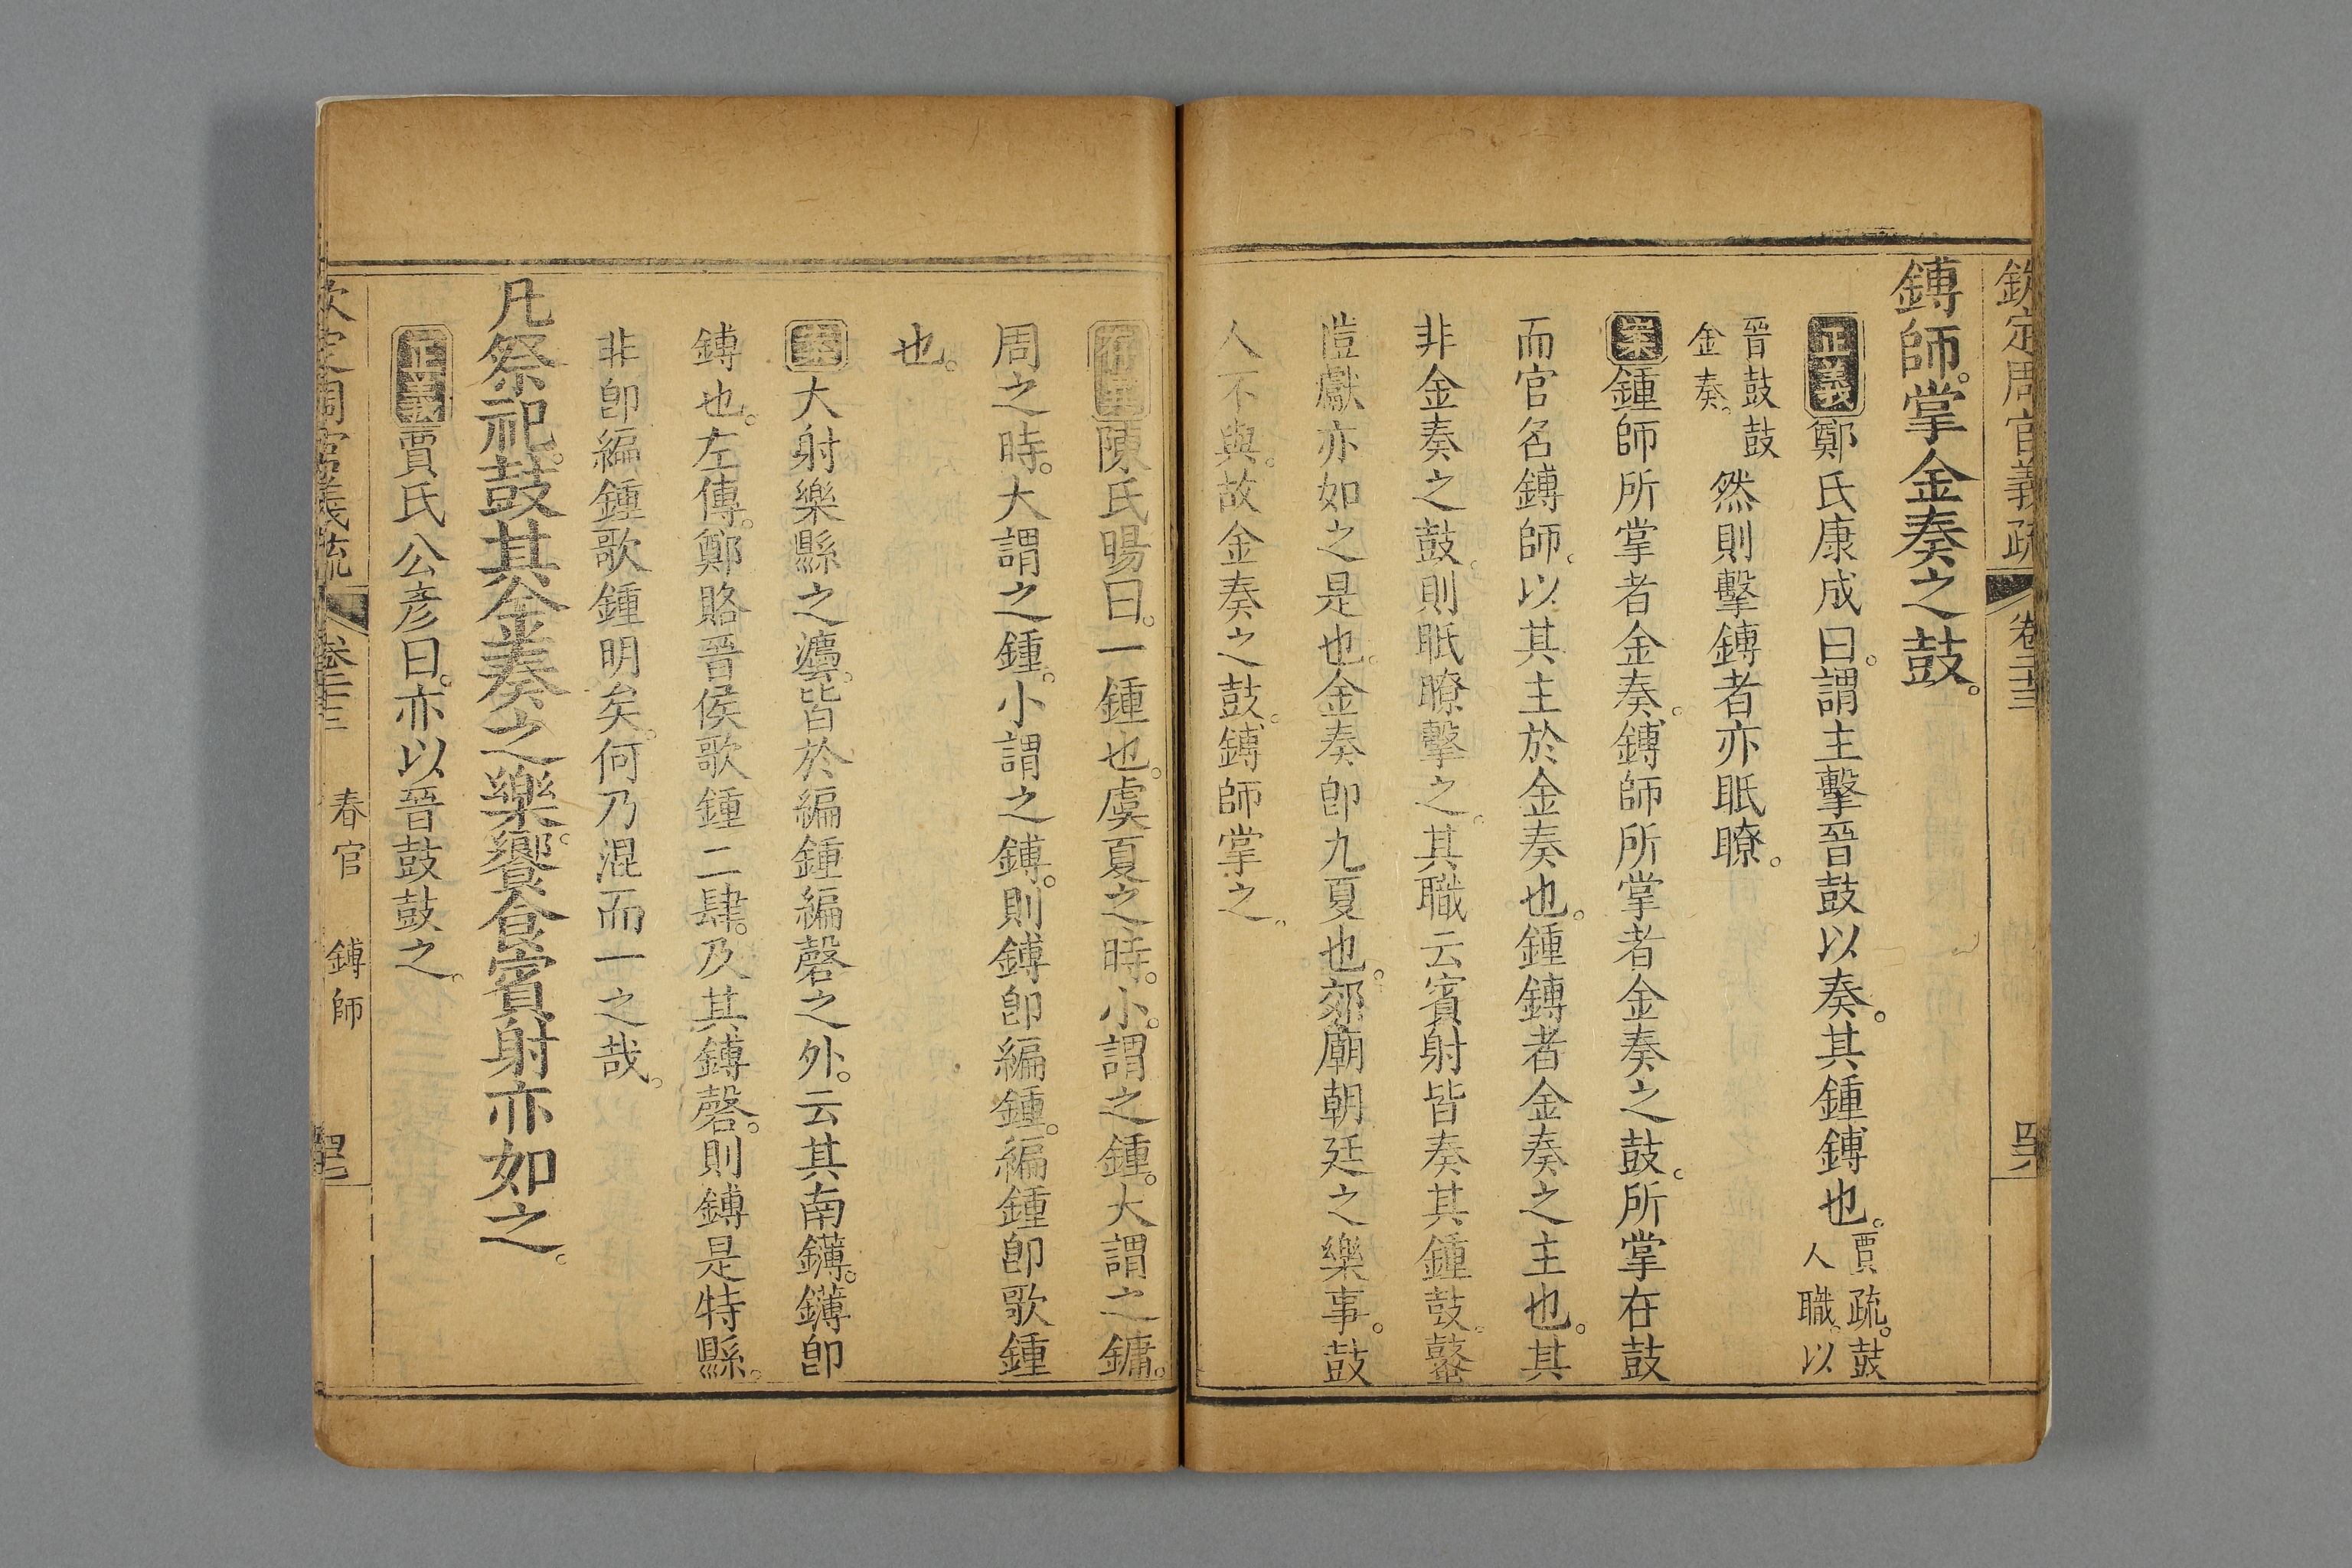 欽定周官義疏 卷二十三 四六
鎛師。掌金奏之鼓。
正義鄭氏康成曰。謂主擊晉鼓以奏。其鍾鎛也。賈疏。鼓人職。以
晉鼓鼓金奏。然則擊鎛者亦眂瞭。
案鍾師所掌者金奏。鎛師所掌者金奏之鼓。所掌在鼓
而官名鎛師。以其主於金奏也。鍾鎛者金奏之主也。其
非金奏之鼓。則眂瞭擊之。其職云賓射皆奏其鍾鼓。鼜
愷獻亦如之是也。金奏卽九夏也。郊廟朝廷之樂事。鼓
人不與。故金奏之鼓。鎛師掌之。
陳氏暘曰。一鍾也。虞夏之時。小謂之鍾。大謂之鏞。
周之時。大謂之鍾。小謂之鎛。則鎛卽編鍾。編鍾卽歌鍾
也。
案大射樂縣之灋。皆於編鍾編磬之外。云其南鑮。鑮卽
鎛也。左傳。鄭賂晉侯歌鍾二肆。及其鎛磬。則鎛是特縣。
非卽編鍾歌鍾明矣。何乃混而一之哉。
凡祭祀。鼓其金奏之樂。饗食賓射亦如之。
正義賈氏公彥曰。亦以晉鼓鼓之。
欽定周官義疏 卷二十三 春官 鎛師 四七